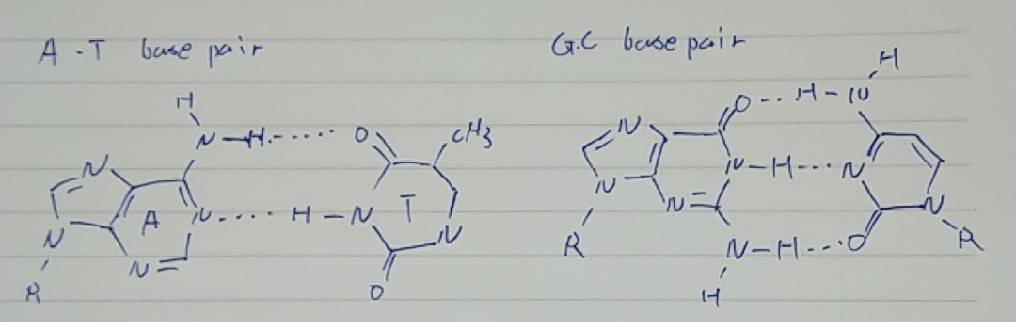 A-T base pair
H
N-H······ O CH3
N
A N····· H-N T
N
N
N
R
O
G.C base pair
H
O··· H-N
N
N-H···· N
N
N
N
R
N-H···· O
R
H